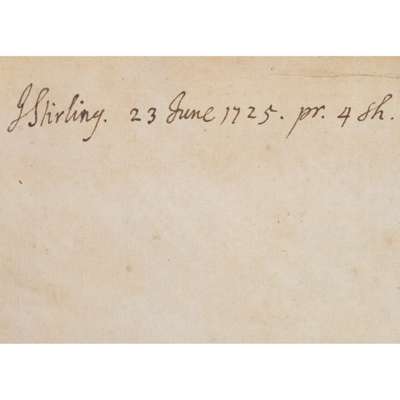 J Stirling. 23 June 1725. pr. 4 sh.